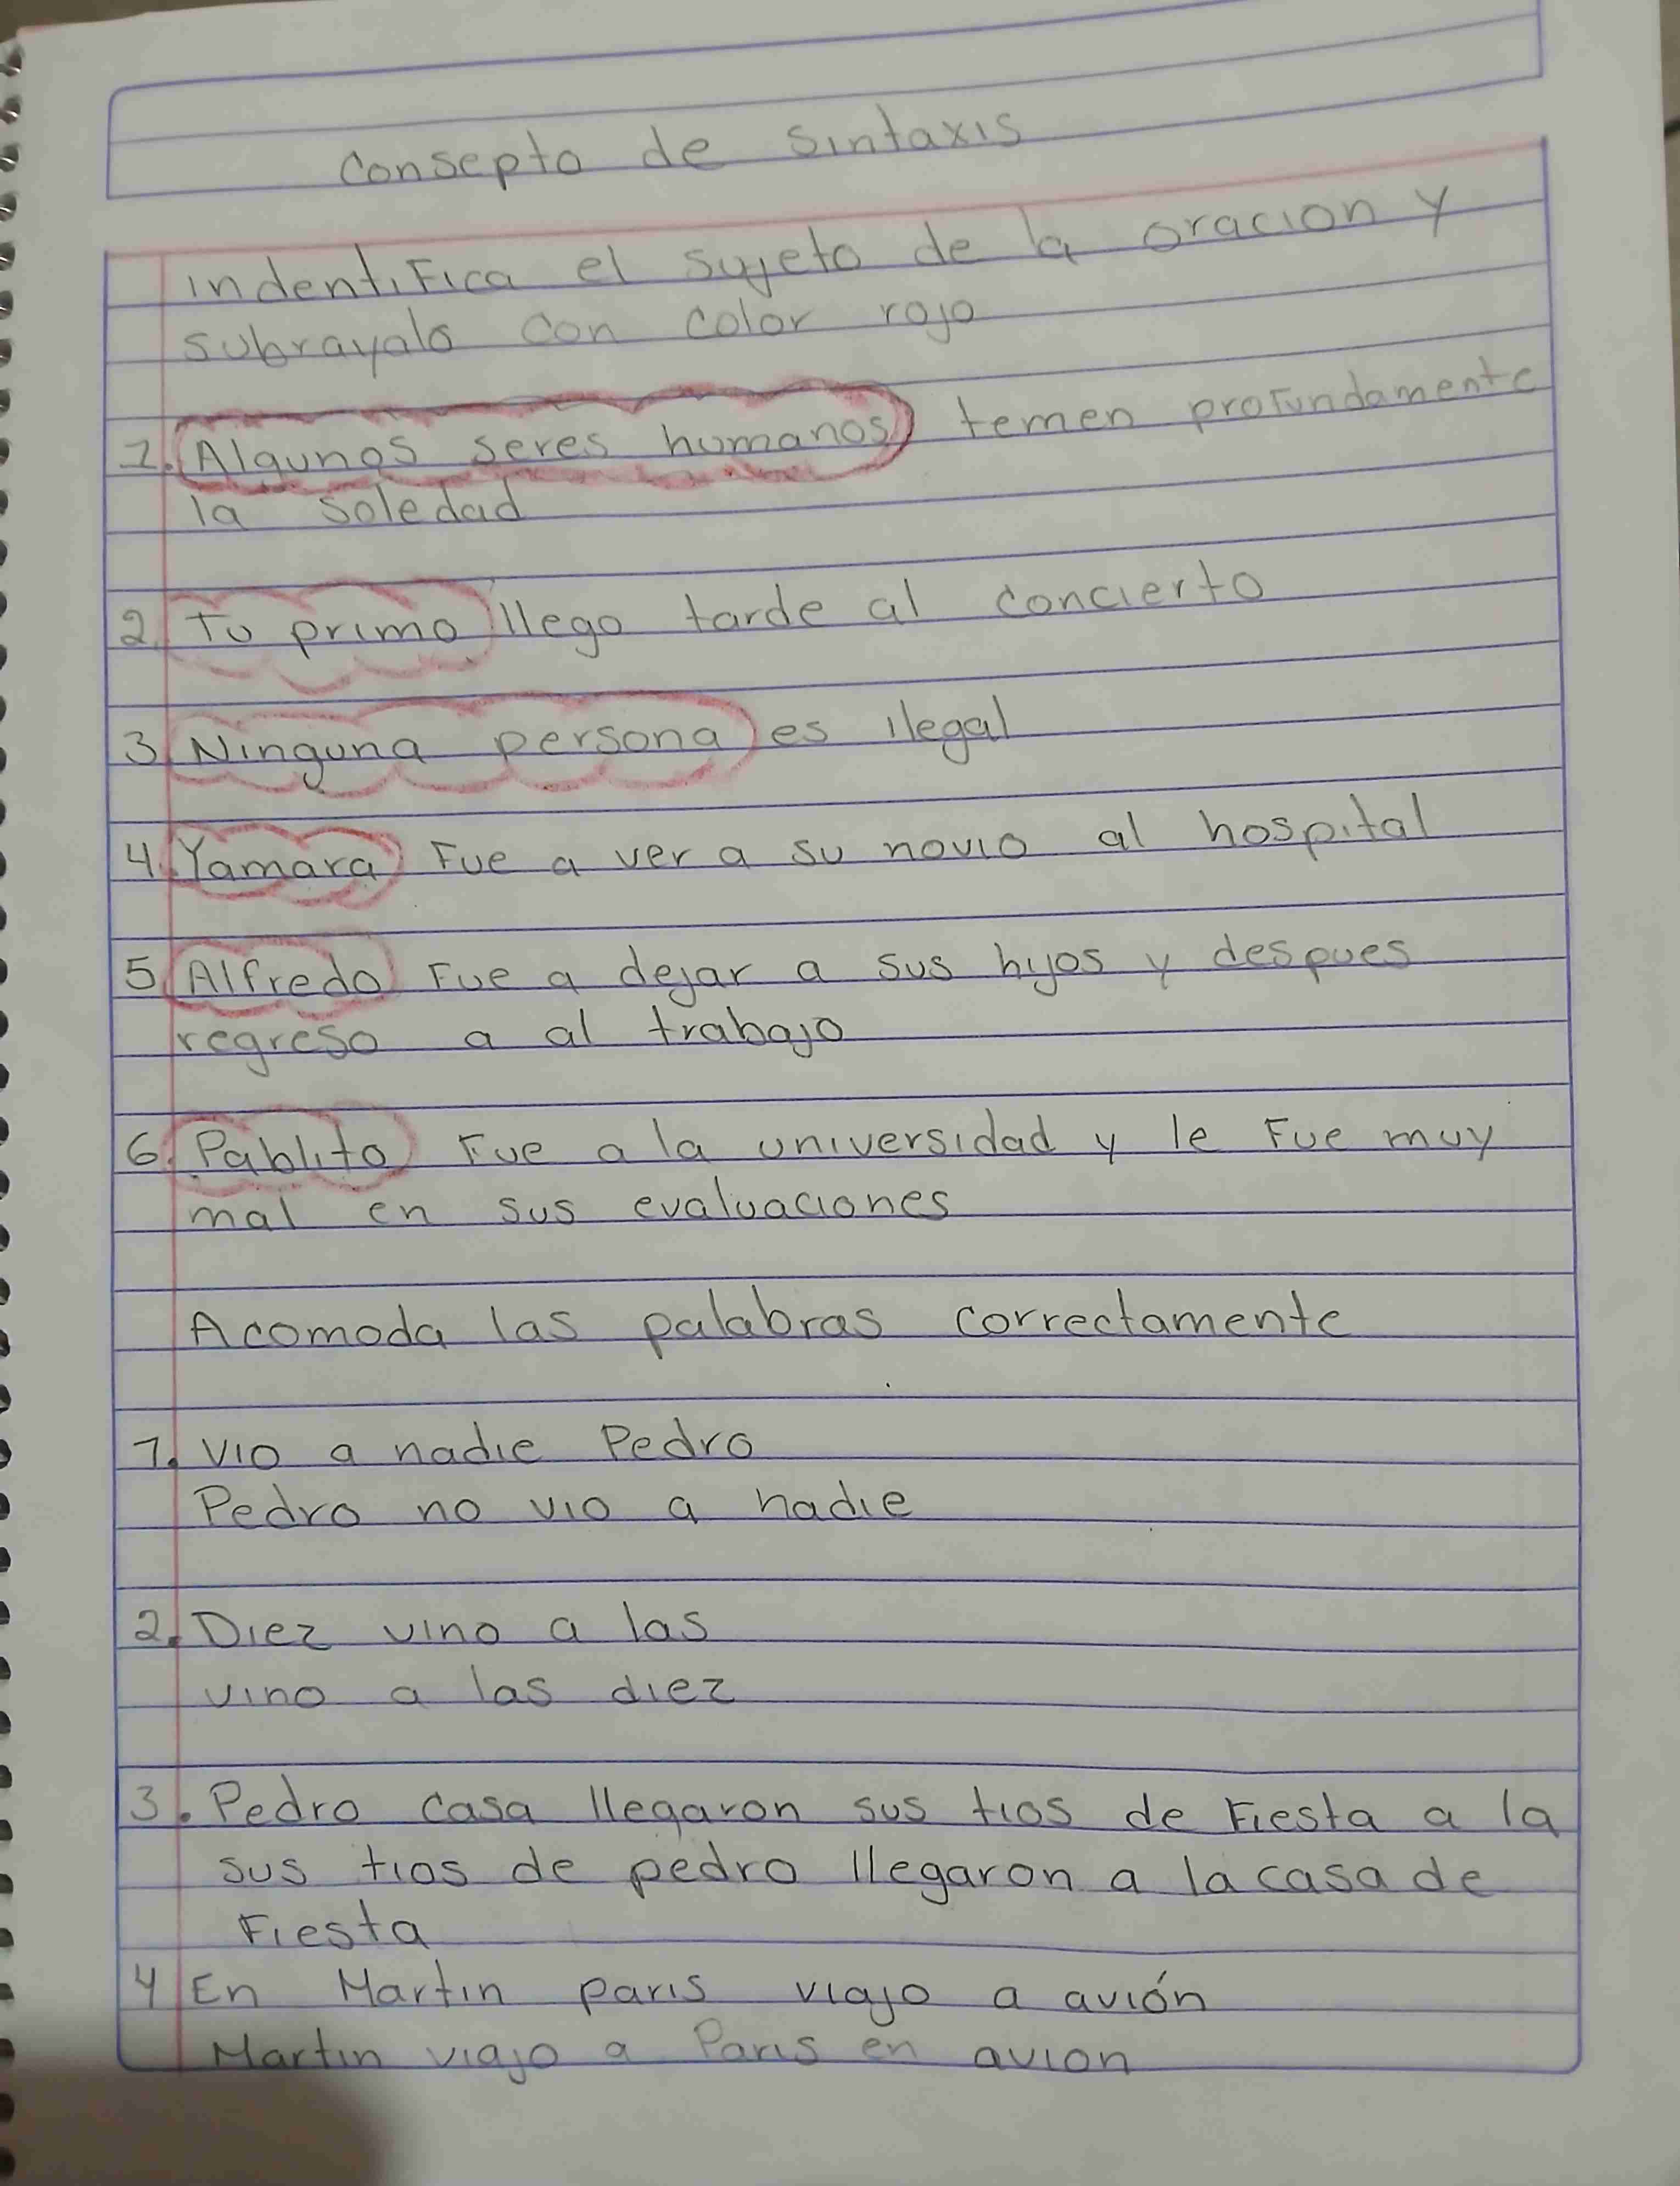 Consepto de sintaxis
indentifica el sujeto de la oracion y
subrayalo con color rojo
1. Algunos seres humanos temen profundamente
la soledad
2. Tu primo llego tarde al concierto
3. Ninguna persona es ilegal
4. Yamara Fue a ver a su novio al hospital
5. Alfredo Fue a dejar a sus hijos y despues
regreso a al trabajo
6. Pablito Fue a la universidad y le Fue muy
mal en sus evaluaciones
Acomoda las palabras correctamente
1. Vio a nadie Pedro
Pedro no vio a nadie
2. Diez vino a las
vino a las diez
3. Pedro casa llegaron sus tios de Fiesta a la
sus tios de pedro llegaron a la casa de
Fiesta
4 En Martin paris viajo a avión
Martin viajo a Paris en avion